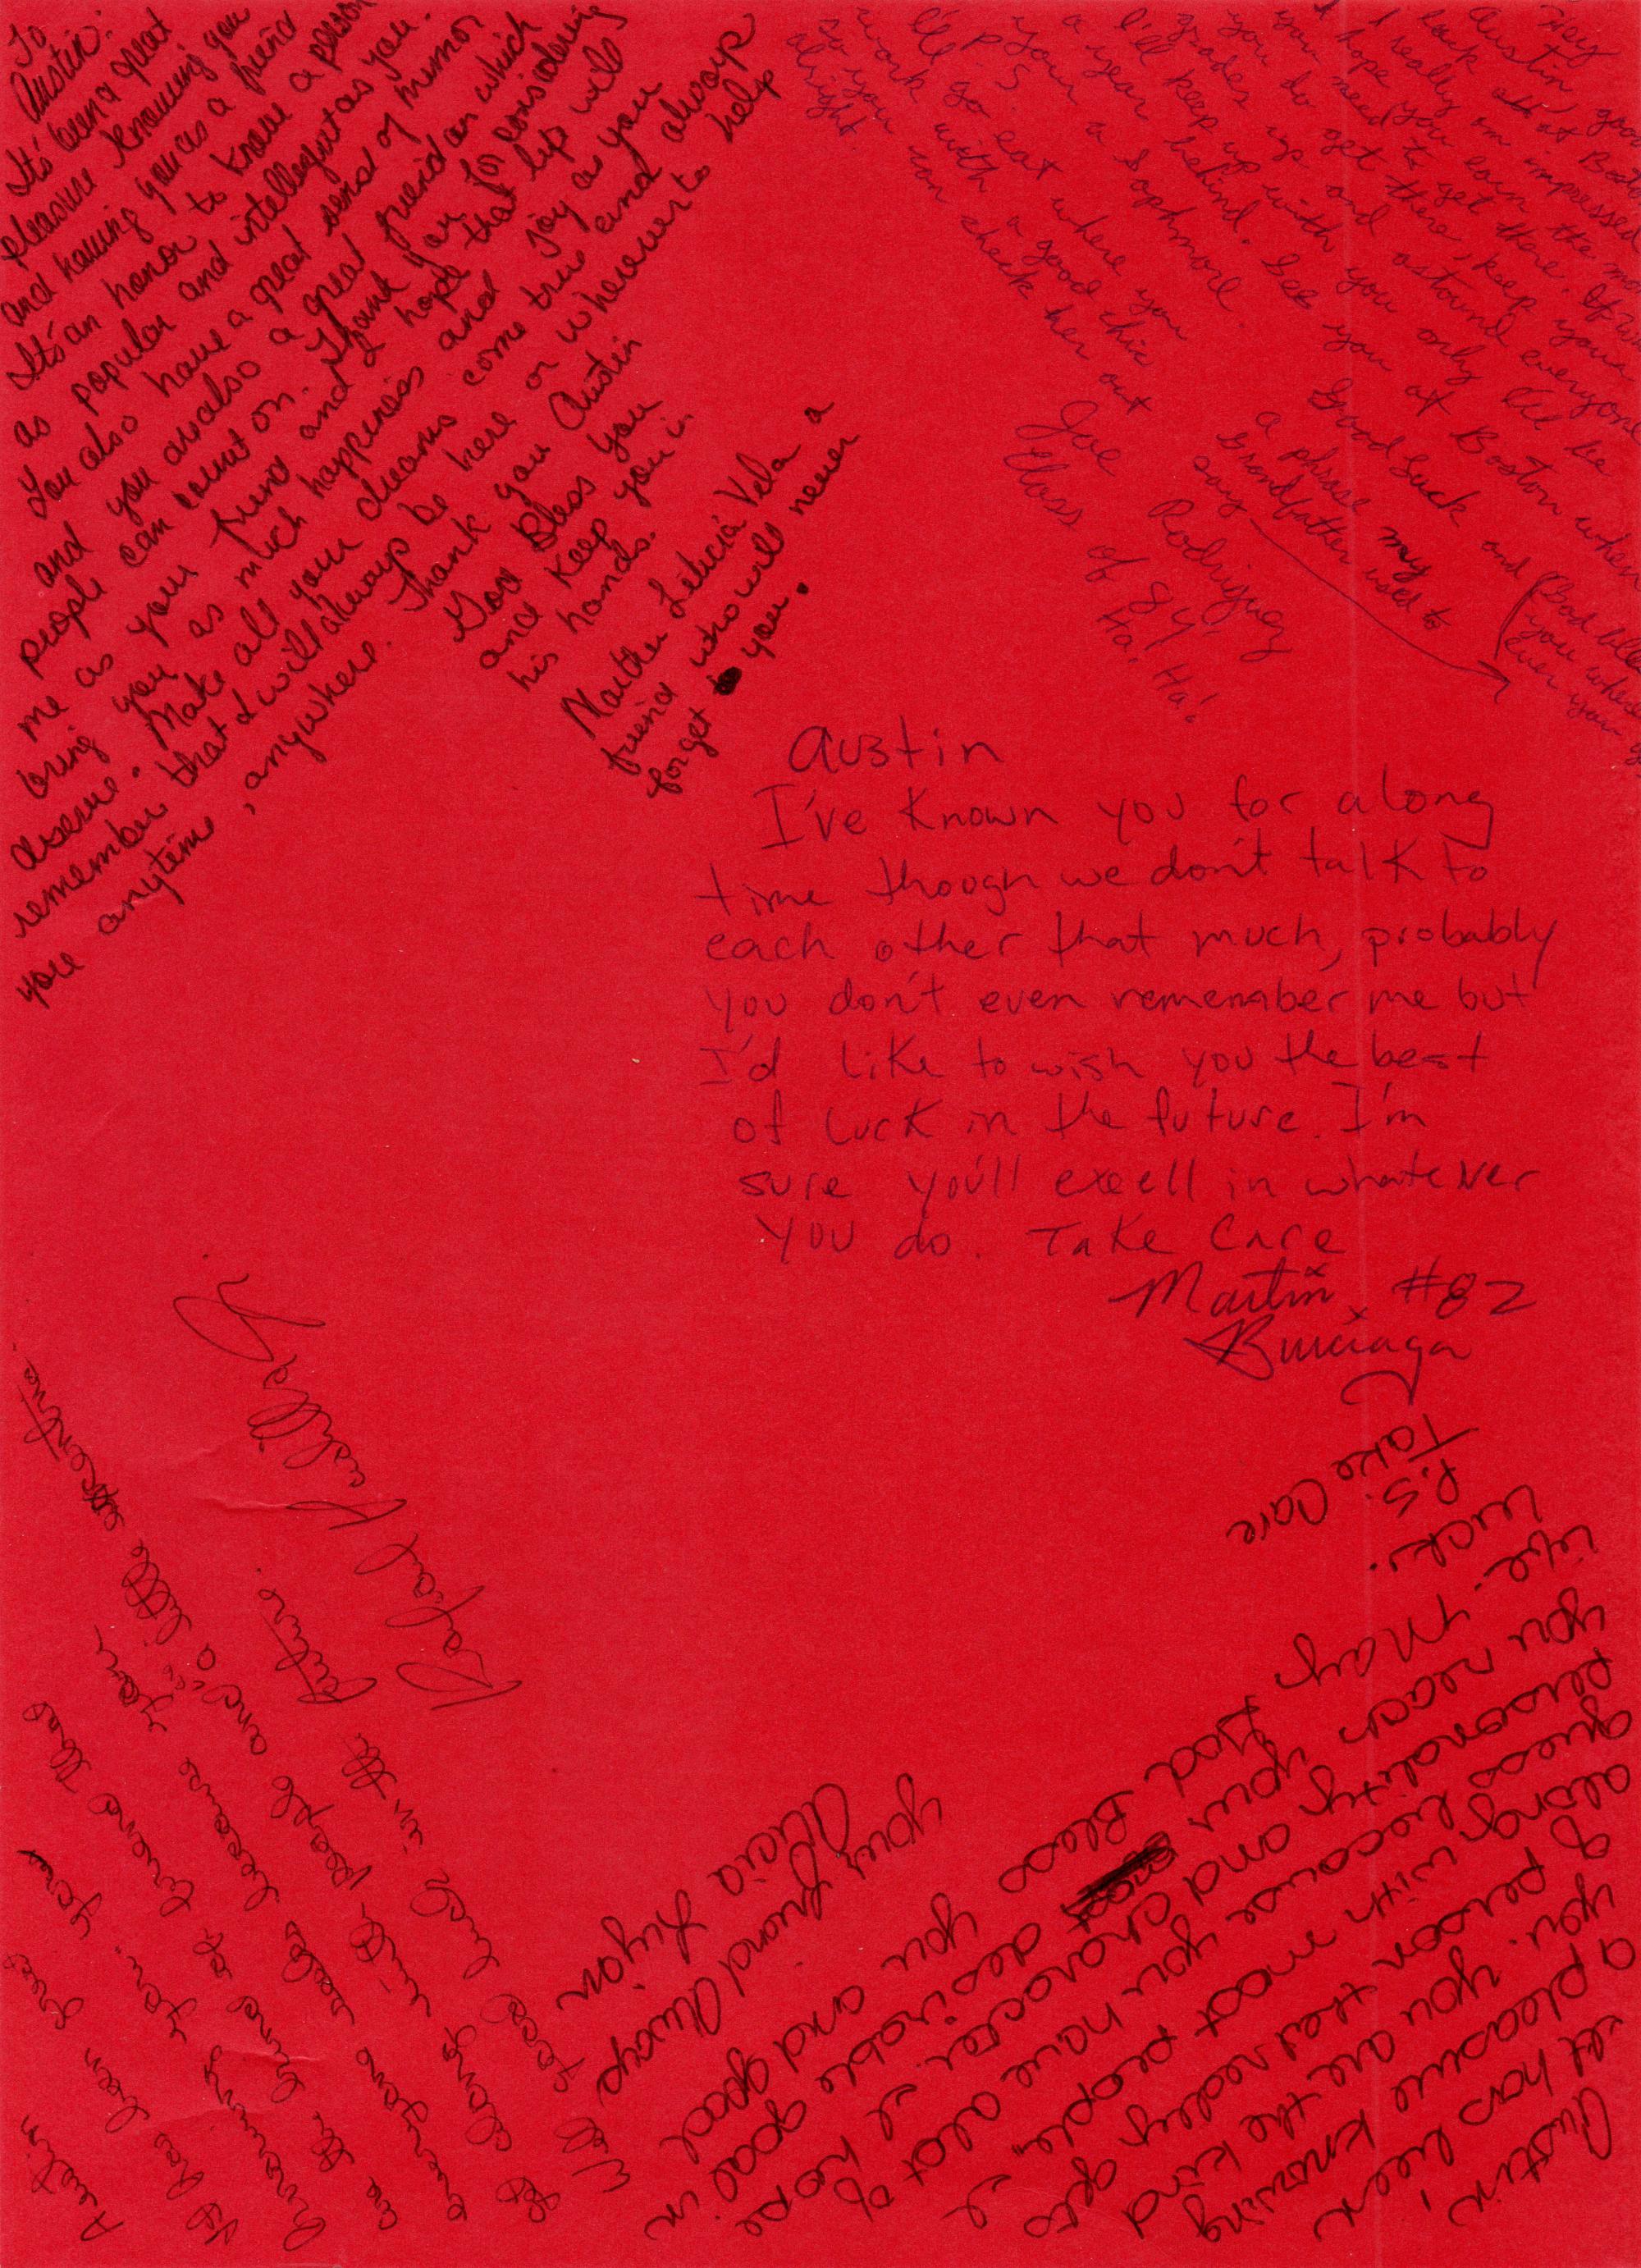 To
Austin:
It's been a great
pleasure knowing you
and having you as a friend
It's an honor to know a person
as popular and intellegent as you.
You also have a great sens of humor
and you are also a great friend on which
people can count on. Thank you for considering
me as your friend and I hope that life will
bring you as much happiness and joy as you
deserve. Make all your dreams come true and always
remember that I will always be here or wherever to help
you anytime, anywhere. Thank you Austin
God Bless you
and keep you in
his hands.
Martha Leticia Vela a
friend who will never
forget you.
Hey
Austin, good
luck at Boston
I really am impressed
I hope you earn the mo
you need to get there. If
you do get there, keep your
grades up and astound everyone
I'll keep up with you only I'll be
a year behind. See you at Boston when
your a Sophmore.
Good Luck and
P.S.
I'll go eat where you
work with a good chic
so you can check her out
alright
a phrase my
Grandfather used to
say
Joe Rodriguez
Class of 84!
Ha! Ha!
Austin
I've known you for a long
time though we don't talk to
each other that much, probably
you don't even rememaber me but
I'd like to wish you the best
of luck in the future. I'm
sure you'll exell in whatever
you do. Take Care
Martin #82
Burciaga
Austin,
It has been
a pleasure knowing
you. you are the kind
of person that really gets
along with most people. I
guess because you have alot of
personality and character. I hope
you reach your desirable goal in
life. May God Bless you and good
luck.
P.S.
Take Care
your friend Always
Alicia Lujan
Austin
It has been great
knowing you. your
are the kind of friend that
everyone seeks because you
get along with people and "a little
Well good luck in the
future.
Rafael Kashillas Jr.